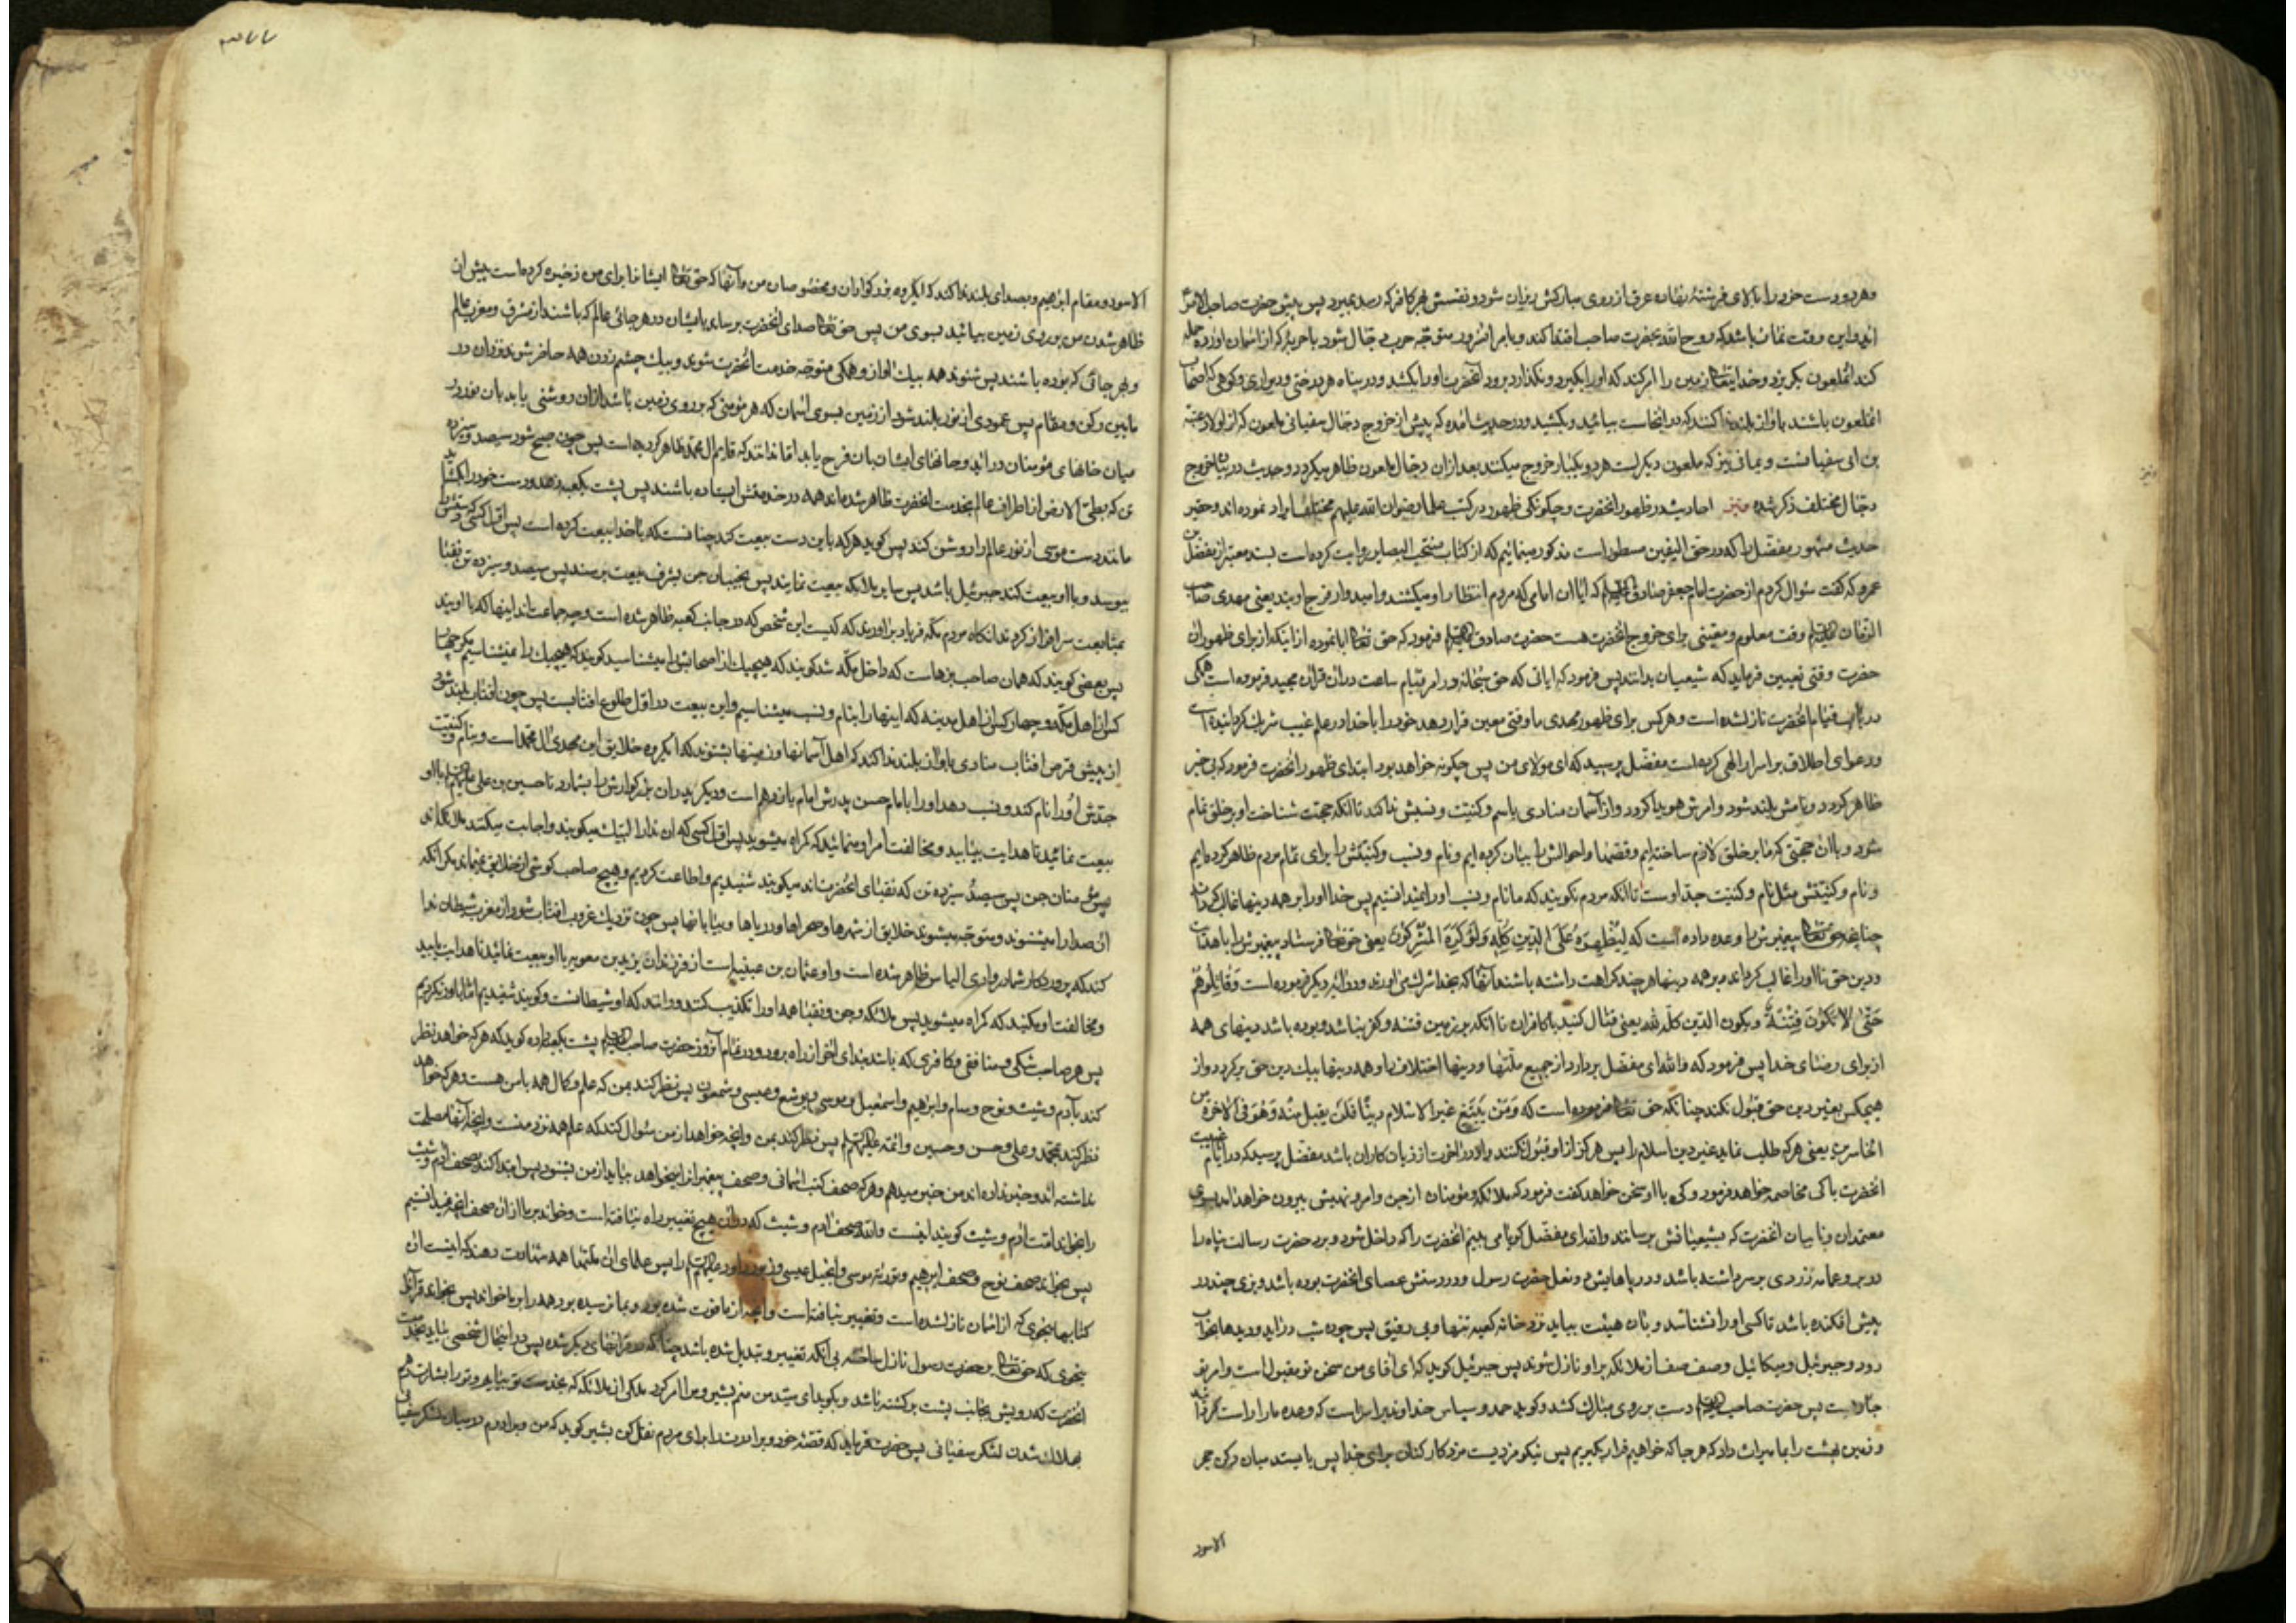 وهر دو دست خود را بالای فرشتهٔ نهاده عرق از روی مبارکش ریزان شود و نفسش بهر کافر که رسد بمیرد پس پیش حضرت صاحب الامر
اید و این وقت نماز باشد که روح الله بحضرت صاحب اقتدا کند و بامر انسرور متوجه حرب دجال شود با حربهٔ که از اسمان اورده حمله
کند انملعون بگریزد و خدایتعالی زمین را امر کند که او را بگیرد و نگذارد برود انحضرت او را بکشد و در پناه هر درختی و دیواری و کوهی که اصحاب
انملعون باشند باواز بلند ندا کنند که در اینجاست بیائید و بکشید و در حدیث امده که پیش از خروج دجال سفیانی ملعون که از اولاد عتبه
بن ابی سفیانست و یمانی نیز که ملعون دیگر است هر دو یکبار خروج میکنند بعد از ان دجال ملعون ظاهر میگردد و حدیث در بیان خروج
دجال مختلف ذکر شده احادیث در ظهور انحضرت و چگونگی ظهور در کتب علما رضوان الله علیهم مختلف ایراد نموده اند و حقیر
حدیث مشهور مفضل را که در حق الیقین مسطور است مذکور مینمائیم که از کتاب منتخب البصایر روایت کرده است بسند معتبر از مفضل بن
عمرو که گفت سؤال کردم از حضرت امام جعفر صادق که ایا ان امامی که مردم انتظار او میکشند و امیدوار فرج اویند یعنی مهدی صاحب
الزمان وقت معلوم و معینی برای خروج انحضرت هست حضرت صادق فرمود که حق تعالی ابا نموده از اینکه از برای ظهور ان
حضرت وقتی تعیین فرماید که شیعیان بدانند پس فرمود که ایاتی که حق سبحانه و در امر قیام ساعت در ان قران مجید فرموده است همگی
در باب قیام انحضرت نازلشده است و هر کس برای ظهور مهدی ما وقتی معین قرار دهد خود را با خدا در علم غیب شریک گردانیده است
و دعوای اطلاق بر اسرار الهی کرده است مفضل پرسید که ای مولای من پس چگونه خواهد بود ابتدای ظهور انحضرت فرمود که بی خبر
ظاهر گردد و نامش بلند شود و امرش هویدا گردد و از آسمان منادی باسم و کنیت و نسبش ندا کند تا انکه حجت شناخت او بر خلق تمام
شود و با ان حجتی که ما بر خلق لازم ساخته ایم و قصها و احوالش را بیان کرده ایم و نام و نسب و کنیتش را برای تمام مردم ظاهر کرده ایم
و نام و کنیتش مثل نام و کنیت جد اوست تا انکه مردم نگویند که ما نام و نسب او را نمیدانستیم پس خدا او را بر همه دینها غالب گرداند
چنانچه حق تعالی پیغمبرش را وعده داده است که لِیُظْهِرَهُ عَلَی الدِّینِ کُلِّهِ وَلَوْ کَرِهَ الْمُشْرِکُونَ یعنی حق تعالی فرستاد پیغمبرش را با هدایت
و دین حق تا او را غالب گرداند بر همه دینها هر چند کراهت داشته باشند آنها که بخدا شرک می اورند و در ایهٔ دیگر فرموده است وَقَاتِلُوهُمْ
حَتّٰی لَا تَکُونَ فِتْنَةٌ ویکون الدین کله لله یعنی قتال کنید با کافران تا انکه بر زمین فتنه و کفر نباشد و بوده باشد دینهای همه
از برای رضای خدا پس فرمود که والله ای مفضل بردارد از جمیع ملتها و دینها اختلاف را و همه دینها بیک دین حق برگردد و از
هیچکس بغیر دین حق قبول نکند چنانکه حق تعالی فرموده است که وَمَنْ یَبْتَغِ غیر الاسلام دینًا فَلَنْ یقبل منه وَهُوَ فی الآخرة من
الخاسرین یعنی هر که طلب نماید غیر دین اسلام را پس هرگز از او قبول نکنند و او در اخرت از زیان کاران باشد مفضل پرسید که در ایام غیبت
انحضرت با کی مخاصمه خواهد فرمود و کی با او سخن خواهد گفت فرمود که ملائکه و مؤمنان از جن و امر و نهیش بیرون خواهد امد بسوی
معتمدان و نایبان انحضرت که بشیعیانش برسانند والله ای مفضل گویا می بینم انحضرت را که داخل شود و برد حضرت رسالت پناه را
در بر و عمامه زردی بر سر داشته باشد و در پاهایش دو نعل حضرت رسول و در دستش عصای انحضرت بوده باشد و بزی چند در
پیش افکنده باشد تا کسی او را نشناسد و بان هیئت بیاید نزد خانه کعبه تنها و بی رفیق پس چون شب دراید و دیدها بخواب
رود و جبرئیل و میکائیل و صف صف از ملائکه بر او نازل شوند پس جبرئیل گوید که ای اقای من سخن تو مقبول است و امر تو
جاریست پس حضرت صاحب دست بر روی مبارک کشد و گوید حمد و سپاس خداوندیرا سزاست که وعده ما را راست گردانید
و زمین بهشت را بما میراث داد که هر جا که خواهیم قرار بگیریم پس نیکو مزدیست مزد کارکنان برای خدا پس بایستد میان رکن حجر
الاسود
الاسود و مقام ابراهیم و بصدای بلند ندا کند که ایگروه بزرگواران و مخصوصان من و آنها که حق تعالی ایشانرا برای من ذخیره کرده است پیش از
ظاهر شدن من بر روی زمین بیائید بسوی من پس حق تعالی صدای انحضرت برساند بایشان در هر جائی عالم که باشند از مشرق و مغرب عالم
و بهر جائی که بوده باشند پس شنوند همه بیک اواز و همگی متوجه خدمت انحضرت شوند و بیک چشم زدن همه حاضر شوند نزد ان در
مابین رکن و مقام پس عمودی از نور بلند شود از زمین بسوی اسمان که هر مؤمنی که بر روی زمین باشد از ان روشنی یابد بان نور در
میان خانهای مؤمنان دراید و جانهای ایشان بان فرح یابد اما ندانند که قایم ال محمد ظاهر گردیده است پس چون صبح شود سیصد و سیزده
تن که بطی الارض از اطراف عالم بخدمت انحضرت ظاهر شده اند همه در خدمتش ایستاده باشند پس پشت بکعبه نهد و دست خود را بگشاید
مانند دست موسی از نور عالم را روشن کند پس گوید هر که با این دست بیعت کند چنانست که با خدا بیعت کرده است پس اول کسی که دستش
ببوسد و با او بیعت کند جبرئیل باشد پس سایر ملائکه بیعت نمایند پس نجیبان جن بشرف بیعت برسند پس سیصد و سیزده تن نقبا
بمتابعت سرافراز گردند انگاه مردم مکه فریاد براورند که کیست این شخص که در جانب کعبه ظاهر شده است و چه جماعت اند اینها که با اویند
پس بعضی گویند که همان صاحب بزهاست که داخل مکه شد گویند که هیچیک از اصحابش را میشناسید گویند که هیچیک را نمیشناسیم مگر چهار
کس از اهل مکه و چهار کس از اهل مدینه که اینها را بنام و نسب میشناسیم و این بیعت در اول طلوع افتابست پس چون افتاب بلند شود
از پیش قرص افتاب منادی باواز بلند ندا کند که اهل آسمانها و زمینها بشنوند که ایگروه خلایق این مهدی ال محمد است و بنام و کنیت
جدش او را نام کند و نسب دهد او را بامام حسن پدرش امام یازدهم است و دیگر پدران بزرگوارش را بشمارد تا حسین بن علی با او
بیعت نمائید تا هدایت بیابید و مخالفت امر او منمائید که گمراه میشوید پس اول کسی که ان ندا را لبیک میگویند و اجابت میکنند ملائکه اند
پس مؤمنان جن پس سیصد و سیزده تن که نقبای انحضرت اند میگویند شنیدیم و اطاعت کردیم و هیچ صاحب گوشی از خلایق نمیماند مگر انکه
ان صدا را میشنوند و متوجه میشوند خلایق از شهرها و صحراها و دریاها و بیابانها پس چون نزدیک غروب افتاب شود از مغرب شیطان ندا
کند که پروردگار شما در وادی الیابس ظاهر شده است و او عثمان بن عنبسه است از فرزندان یزید بن معویه با او بیعت نمائید تا هدایت یابید
و مخالفت او مکنید که گمراه میشوید پس ملائکه و جن و نقبا همه او را تکذیب کنند و دانند که او شیطانست و گویند شنیدیم اما باور نکردیم
پس هر صاحب شکی و منافقی و کافری که باشد بندای اخر از راه برود و در تمام آنروز حضرت صاحب پشت بکعبه داده گوید که هر که خواهد نظر
کند بآدم و شیث و نوح و سام و ابراهیم و اسمعیل و موسی و یوشع و عیسی و شمعون پس نظر کند بمن که علم و کمال همه با من هست و هر که خواهد
نظر کند بمحمد و علی و حسن و حسین و ائمه علیهم السلام پس نظر کند بمن و انچه خواهد از من سئوال کند که علم همه نزد منست و انچه آنها مصلحت
نداشته اند و خبر نداده اند من خبر میدهم و هر که صحف کتب اسمانی و صحف پیغمبرانرا میخواهد بیاید از من بشنود پس ابتدا کند و صحف ادم و شیث
را بخواند امت ادم و شیث گویند اینست والله صحف ادم و شیث که در ان هیچ تغییر راه نیافته است و خواند بر ما از ان صحف انچه نمیدانستیم
پس بخواند صحف نوح و صحف ابرهیم و توریة موسی و انجیل عیسی و زبور داود را پس علمای ان ملتها همه شهادت دهند که اینست ان
کتابها بنحوی که از اسمان نازلشده است و تغییر نیافته است و انچه از ما فوت شده بود و بما نرسیده بود همه را بر ما خواند پس بخواند قرآنرا
بنحوی که حق تعالی بر حضرت رسول نازل ساخته بی آنکه تغییر و تبدیل شده باشد چنانکه در قرانهای دیگر شده پس در اینحال شخصی بیاید بخدمت
انحضرت که رویش بجانب پشت برگشته باشد و بگوید ای سید من منم بشیر و مرا امر کرد ملکی از ملائکه که بخدمت تو بیایم و ترا بشارت دهم
بهلاک شدن لشکر سفیانی پس حضرت فرماید که قصه خود و برادرت را برای مردم نقل کن بشیر گوید که من و برادرم در میان لشکر سفیانی